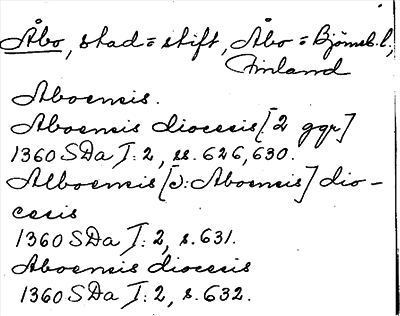 Åbo, stad = stift, Åbo = Björneb. l.,
Finland
Aboensis.
Aboensis diocesis [2 ggr]
1360 SDa I: 2, ss. 626, 630.
Alboensis [ɔ: Aboensis] dio-
cesis
1360 SDa I: 2, s. 631.
Aboensis diocesis
1360 SDa I: 2, s. 632.